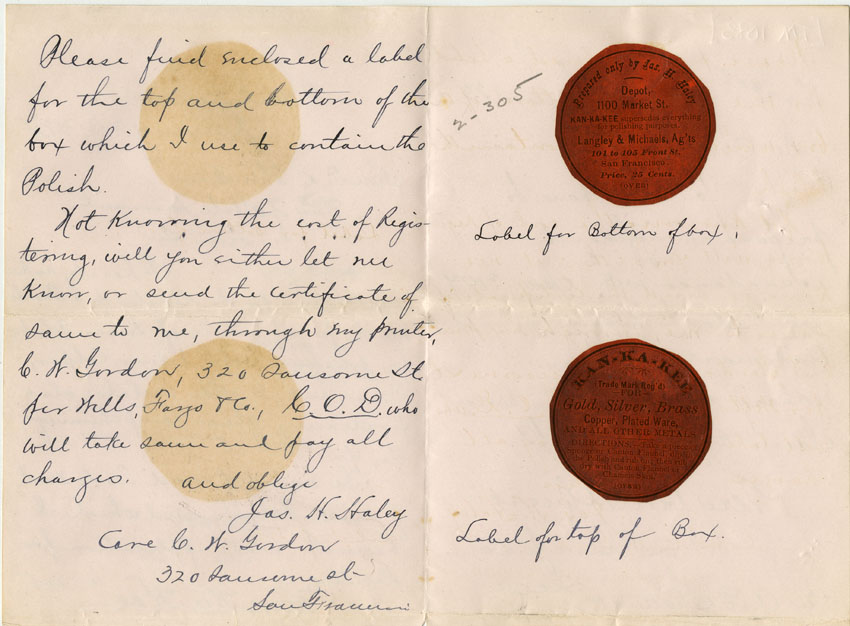 Please find enclosed a label
for the top and bottom of the
box which I use to contain the
Polish.
Not Knowing the cost of Regis-
tering, will you either let me
Know, or send the certificate of
same to me, through my printer,
C. W. Gordon, 320 Sansome St.
per Wells, Fargo & Co., C.O.D. who
will take same and pay all
charges. and oblige
Jas. H. Haley
Care C. W. Gordon
320 Sansome St
San Francisco
2-305
Prepared only by Jas. H. Haley
Depot,
1100 Market St.
KAN-KA-KEE supersedes everything
for polishing purposes.
Langley & Michaels, Ag'ts
101 to 105 Front St.
San Francisco.
Price, 25 Cents.
(OVER)
Label for Bottom of box.
KAN-KA-KEE
(Trade Mark Reg'd)
FOR
Gold, Silver, Brass
Copper, Plated Ware,
AND ALL OTHER METALS
DIRECTIONS
Canton Flannel
dry with Canton Flannel
(OVER)
Label for top of Box.